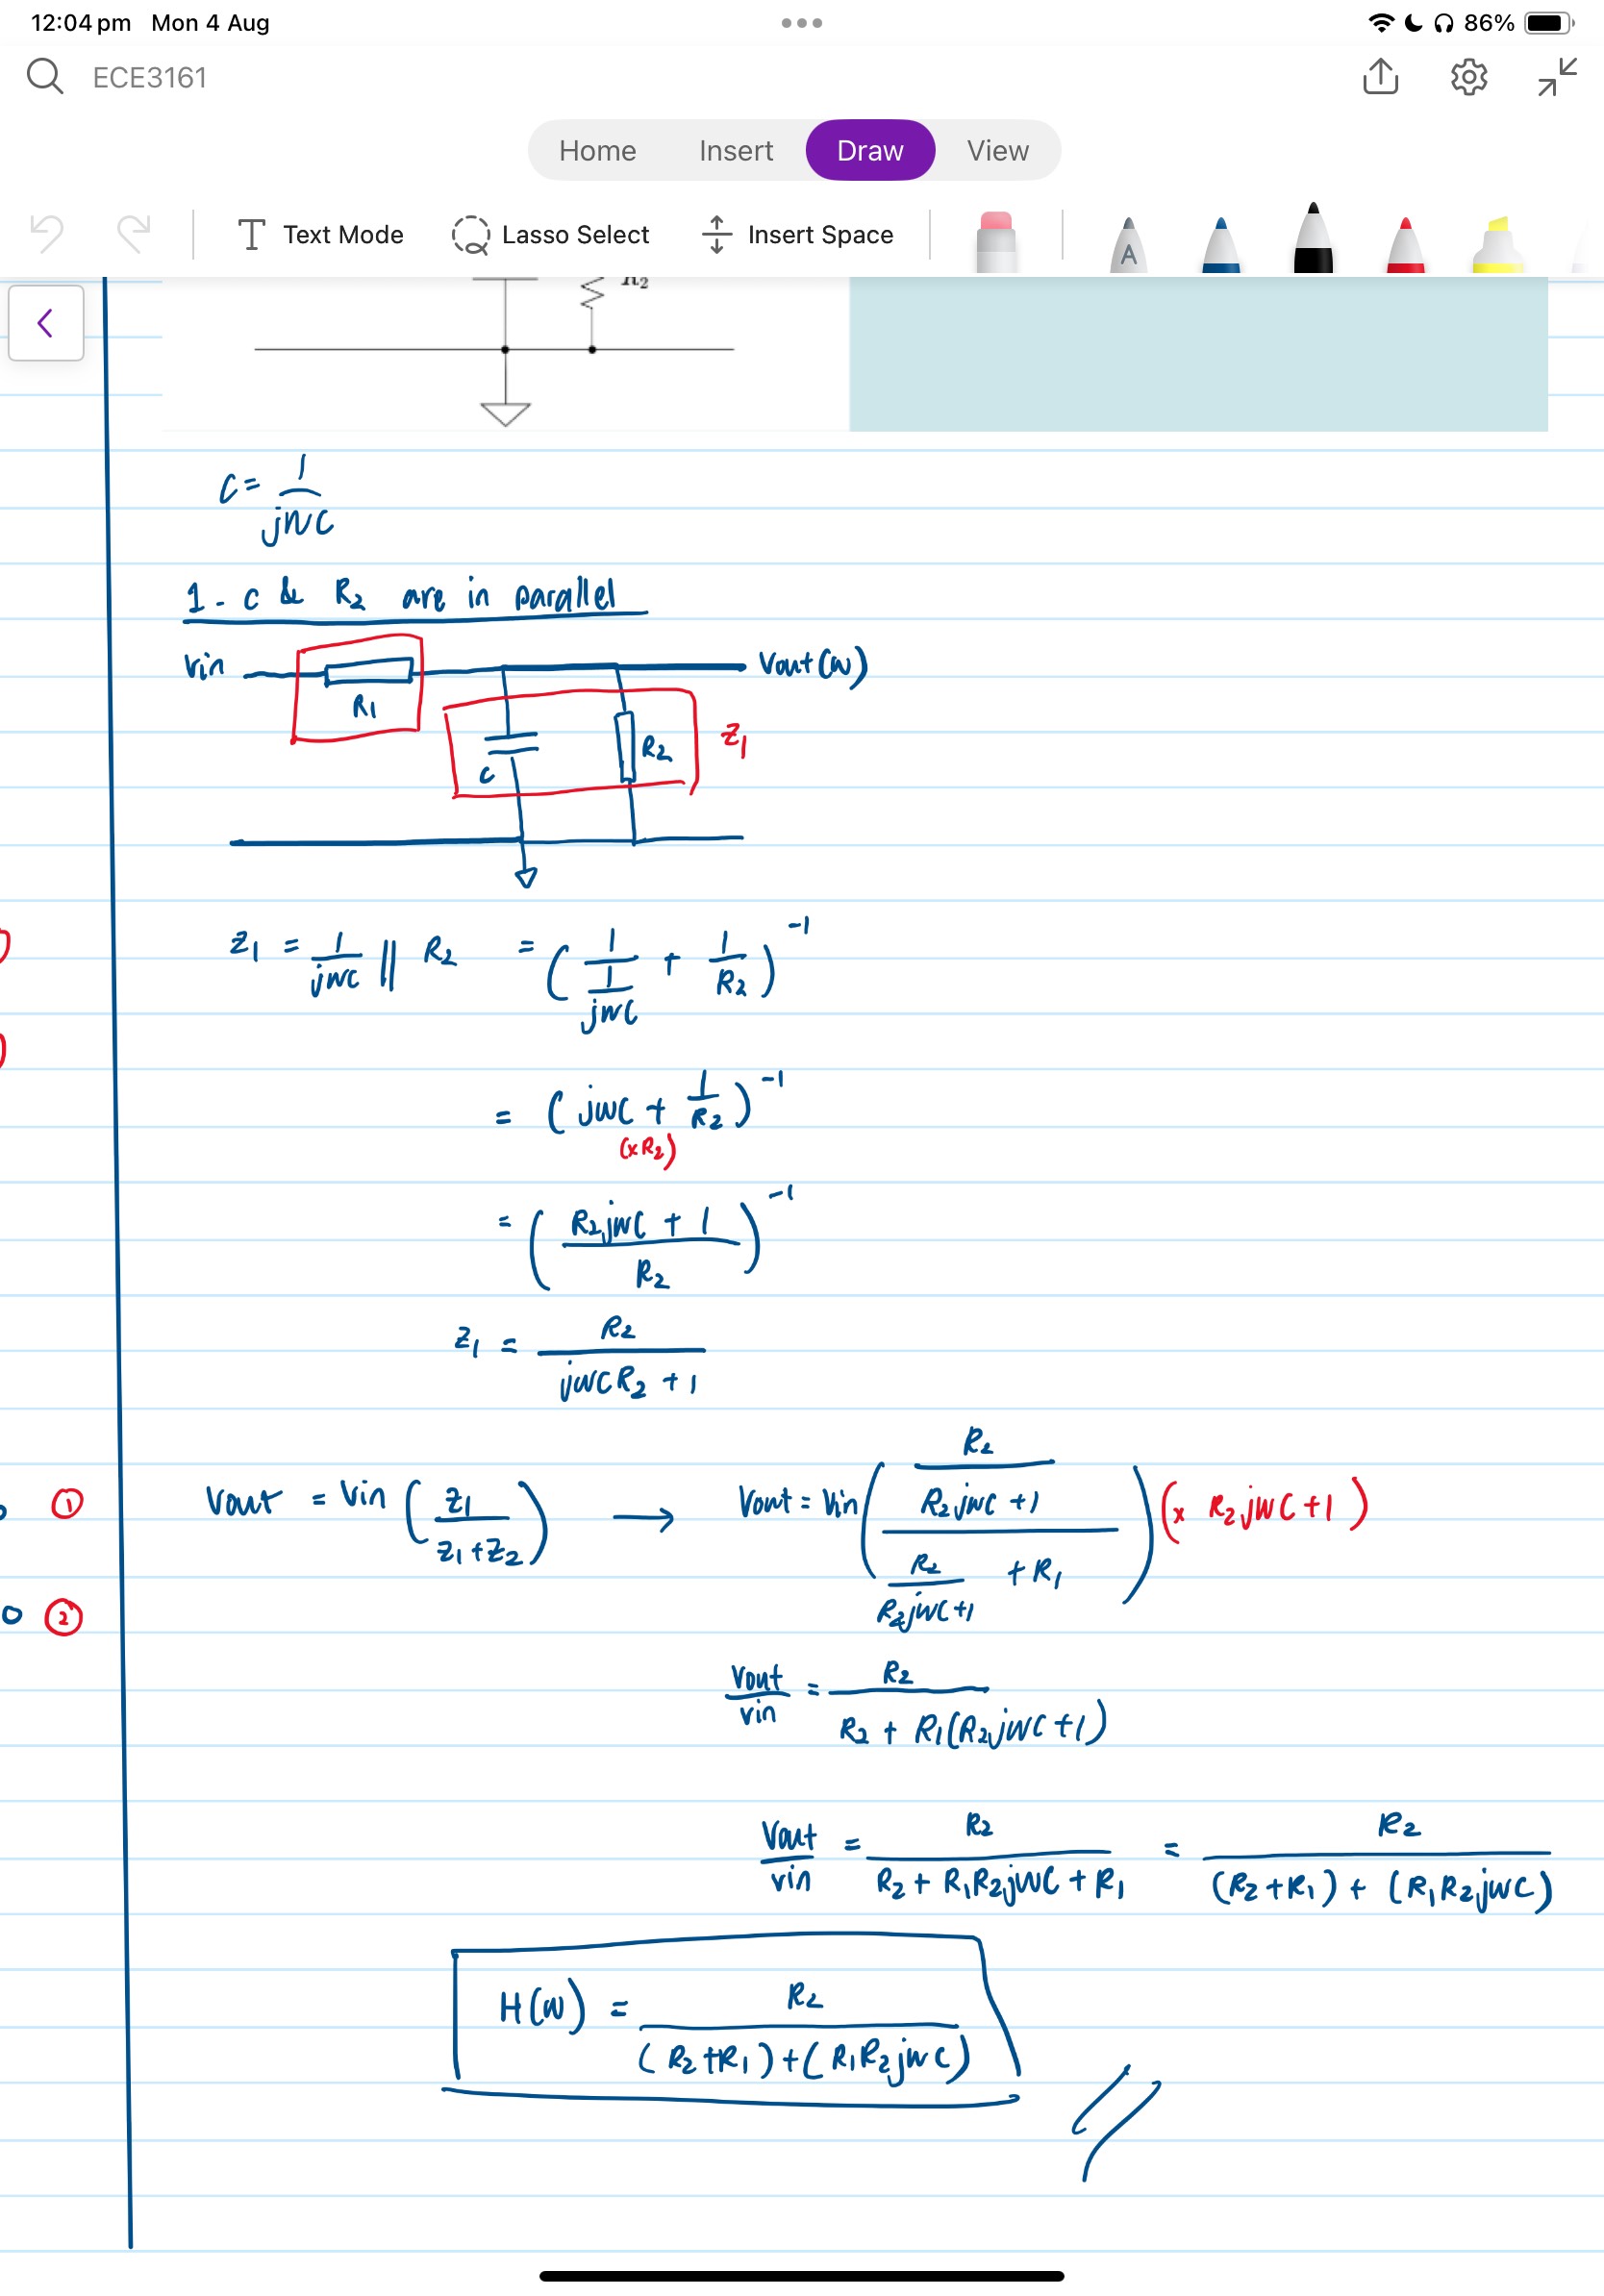 12:04 pm Mon 4 Aug 86%
ECE3161
Home Insert Draw View
Text Mode Lasso Select Insert Space
A
R₂
C = 1/jwc
1 - c & R₂ are in parallel
Vin Vout(w)
R₁
C R₂ Z₁
Z₁ = 1/jwc || R₂ = (1/(1/jwc) + 1/R₂)⁻¹
= (jwc + 1/R₂)⁻¹
(xR₂)
= ((R₂jwc + 1)/R₂)⁻¹
Z₁ = R₂/(jwcR₂ + 1)
① Vout = Vin (Z₁/(Z₁+Z₂)) → Vout = Vin ((R₂/(R₂jwc+1))/(R₂/(R₂jwc+1) + R₁)) (x R₂jwc+1)
②
Vout/Vin = R₂/(R₂ + R₁(R₂jwc+1))
Vout/Vin = R₂/(R₂ + R₁R₂jwc + R₁) = R₂/((R₂+R₁) + (R₁R₂jwc))
H(w) = R₂/((R₂+R₁)+(R₁R₂jwc))